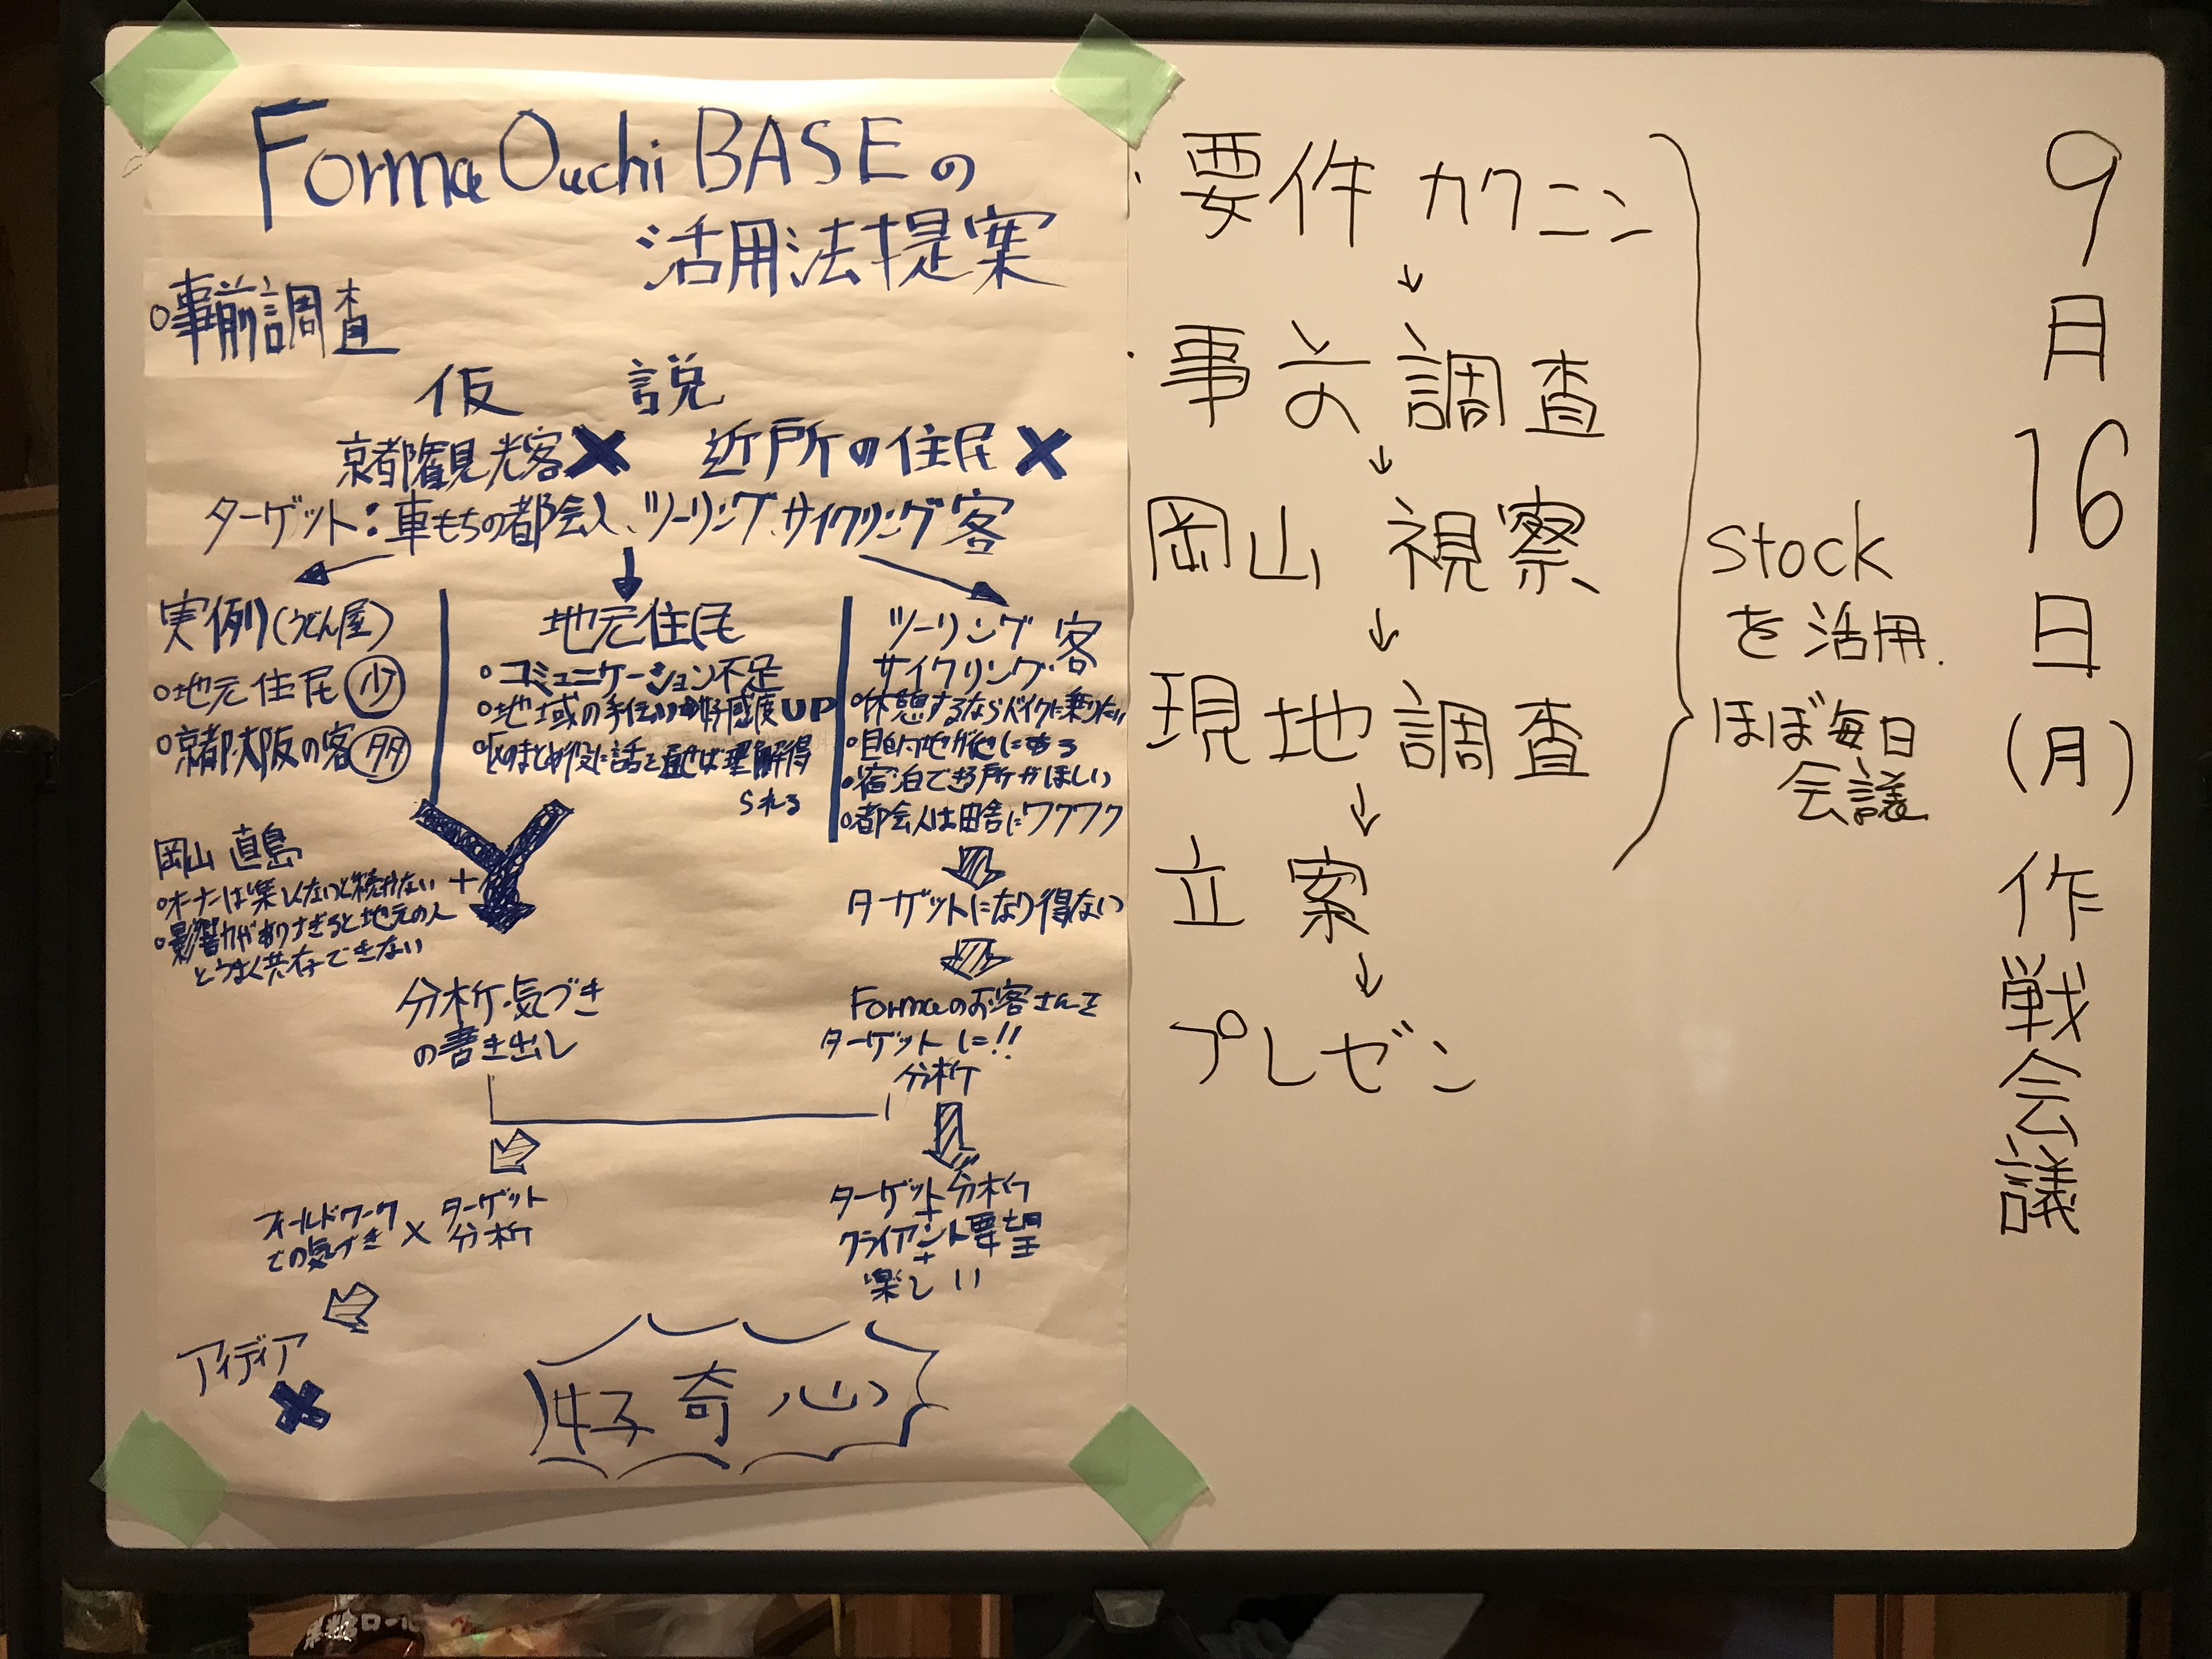 Forma Ouchi BASEの
活用法提案
○事前調査
仮 説
京都観光客✖ 近所の住民✖
ターゲット:車もちの都会人、ツーリング、サイクリング客
実例(うどん屋)
○地元住民 少
○京都大阪の客 多
地元住民
○コミュニケーション不足
○地域の手伝い→好感度UP
まとめ役に話を通せば理解得
られる
ツーリング 客
サイクリング
○休憩するならバイクに乗りたい
○目的地が他にある
○宿泊できる所がほしい
○都会人は田舎にワクワク
岡山 直島
○オーナーは楽しくないと続かない
○影響力がありすぎると地元の人
とうまく共存できない
+
分析・気づき
の書き出し
ターゲットになり得ない
Formaのお客さんを
ターゲットに!!
分析
フィールドワーク
での気づき × ターゲット
分析
ターゲット分析
+
クライアント要望
+
楽しい
アイディア
✖
好奇心
・要件カクニン
↓
・事前調査
↓
岡山 視察
↓
現地調査
↓
立案
↓
プレゼン
stock
を活用.
ほぼ毎日
会議
9月16日(月)作戦会議